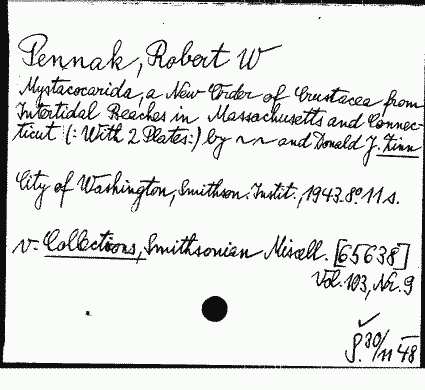 Pennak, Robert W
Mystacocarida, a New Order of Crustacea from
Intertidal Beaches in Massachusetts and Connec-
ticut (: With 2 Plates:) by ~ ~ and Donald J. Zinn
City of Washington, Smithson. Instit., 1943. 8° 11 s.
v. Collections, Smithsonian Miscell. [65638]
Vol. 103, Nr. 9
30/11 48